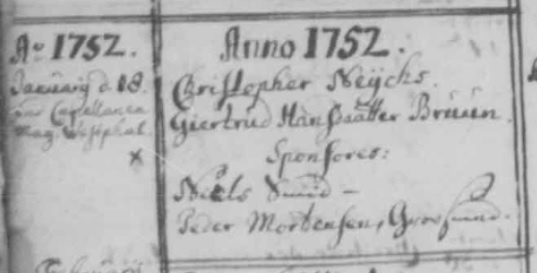 Ao 1752.
Januarij d 18.
Capellanen
Mag. Westphal.
x
Anno 1752.
Christopher Neijchs.
Giertrud Hansdaatter Bruun.
Sponsores:
Niels Smid -
Peder Mortensen, Grovsmed.